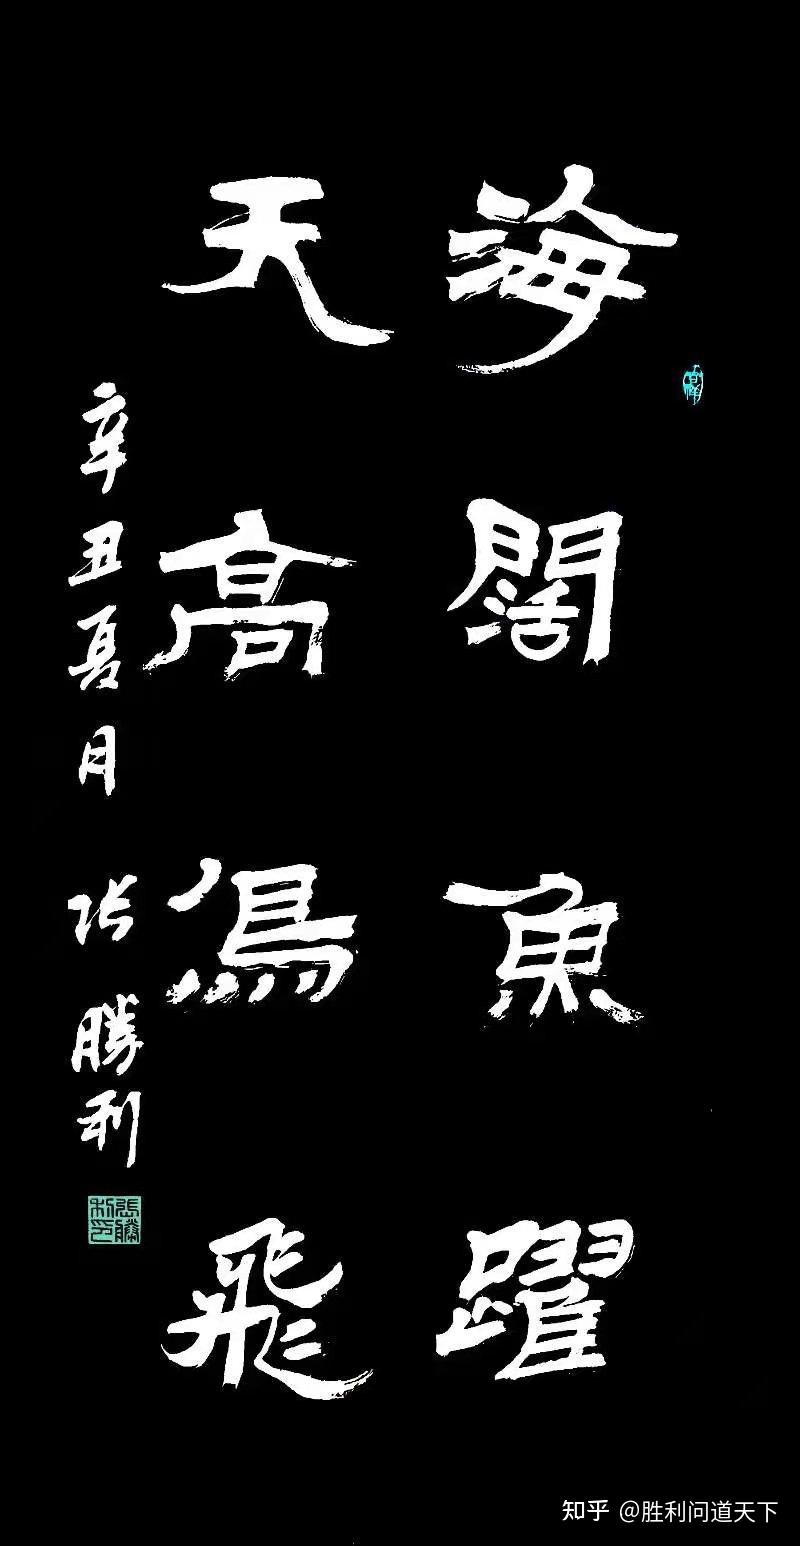 海闊魚躍
天高鳥飛
辛丑夏月 张勝利
張勝利印
知乎 @胜利问道天下